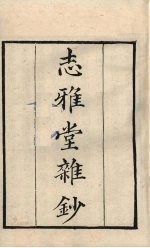 志雅堂雜鈔